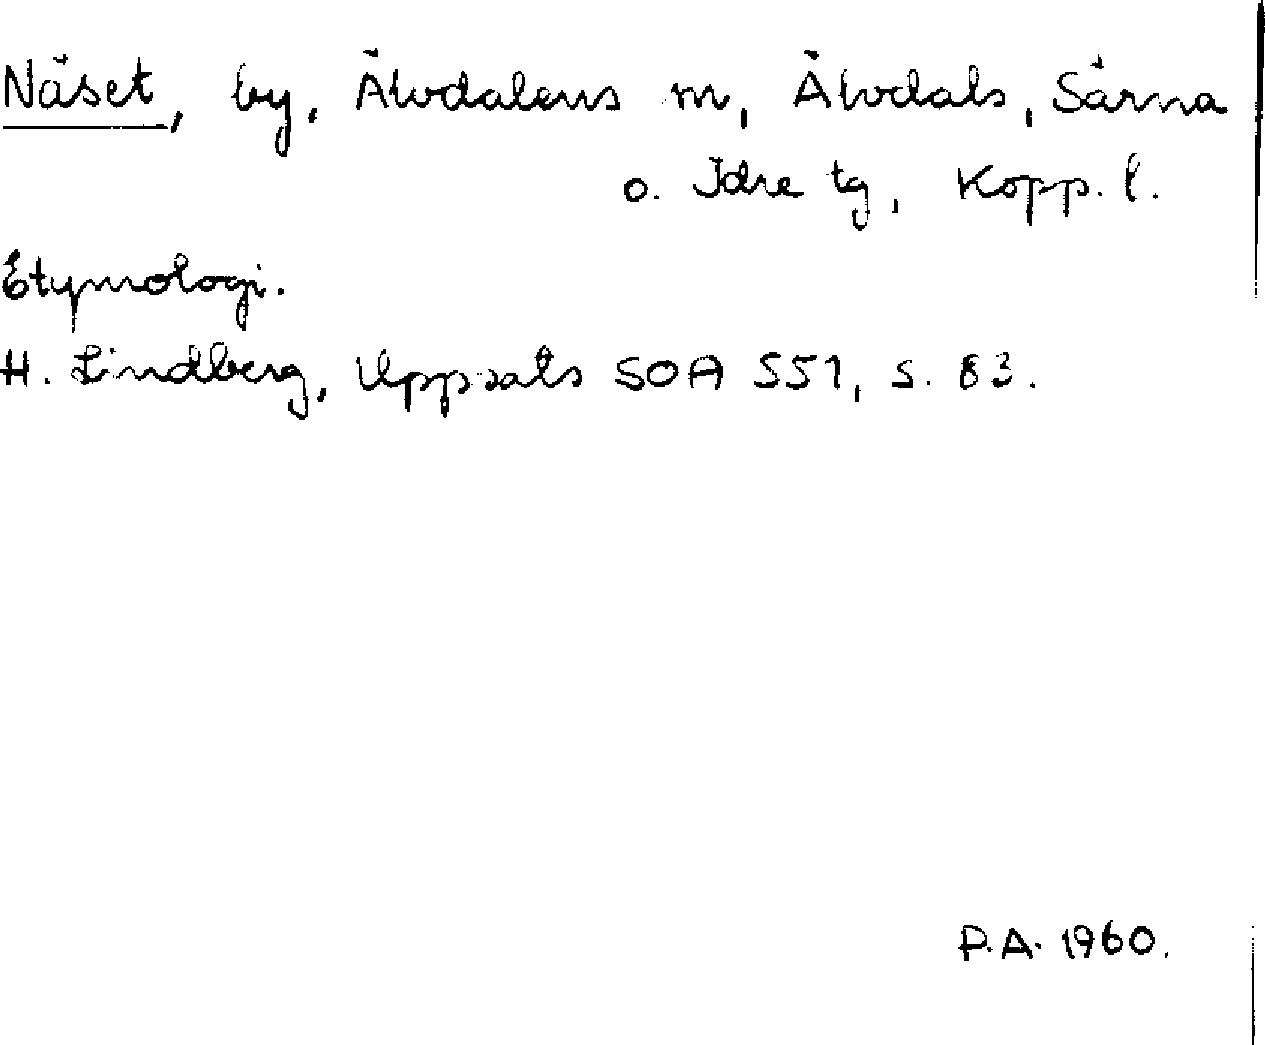 Näset, by, Älvdalens m, Älvdals, Särna
o. Idre tg, Kopp. l.
Etymologi.
H. Lindberg, Uppsats SOA 551, s. 83.
P.A. 1960.